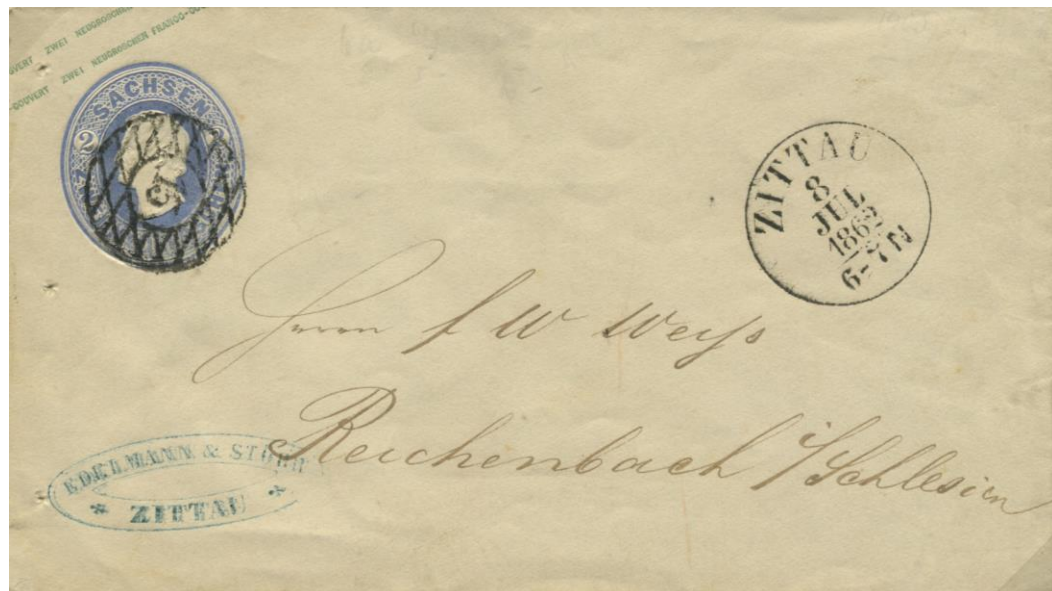 COUVERT ZWEI NEUGROSCHEN
COUVERT ZWEI NEUGROSCHEN FRANCO-COU
SACHSEN
2
5
ZITTAU
8
JUL
1862
6-7N
Herrn f W Weiſs
Reichenbach i/Schlesien
EDELMANN &
ZITTAU